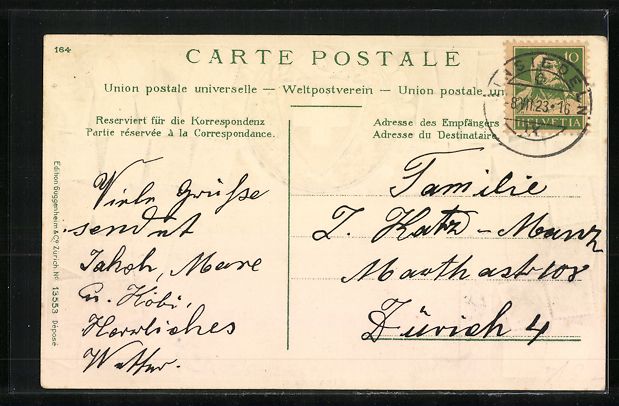 164
CARTE POSTALE
Union postale universelle — Weltpostverein — Union postale un
Reserviert für die Korrespondenz
Partie réservée à la Correspondance.
Adresse des Empfängers
Adresse du Destinataire
10
HELVETIA
EINSIEDELN
23.-16
Edition Guggenheim & Co. Zürich, No. 13553 Déposé
Viele Grüsse
sendet
Jakob, Marie
u. Kobi.
Herrliches
Wetter.
Familie
J. Katz-Manz
Marthastr 108
Zürich 4